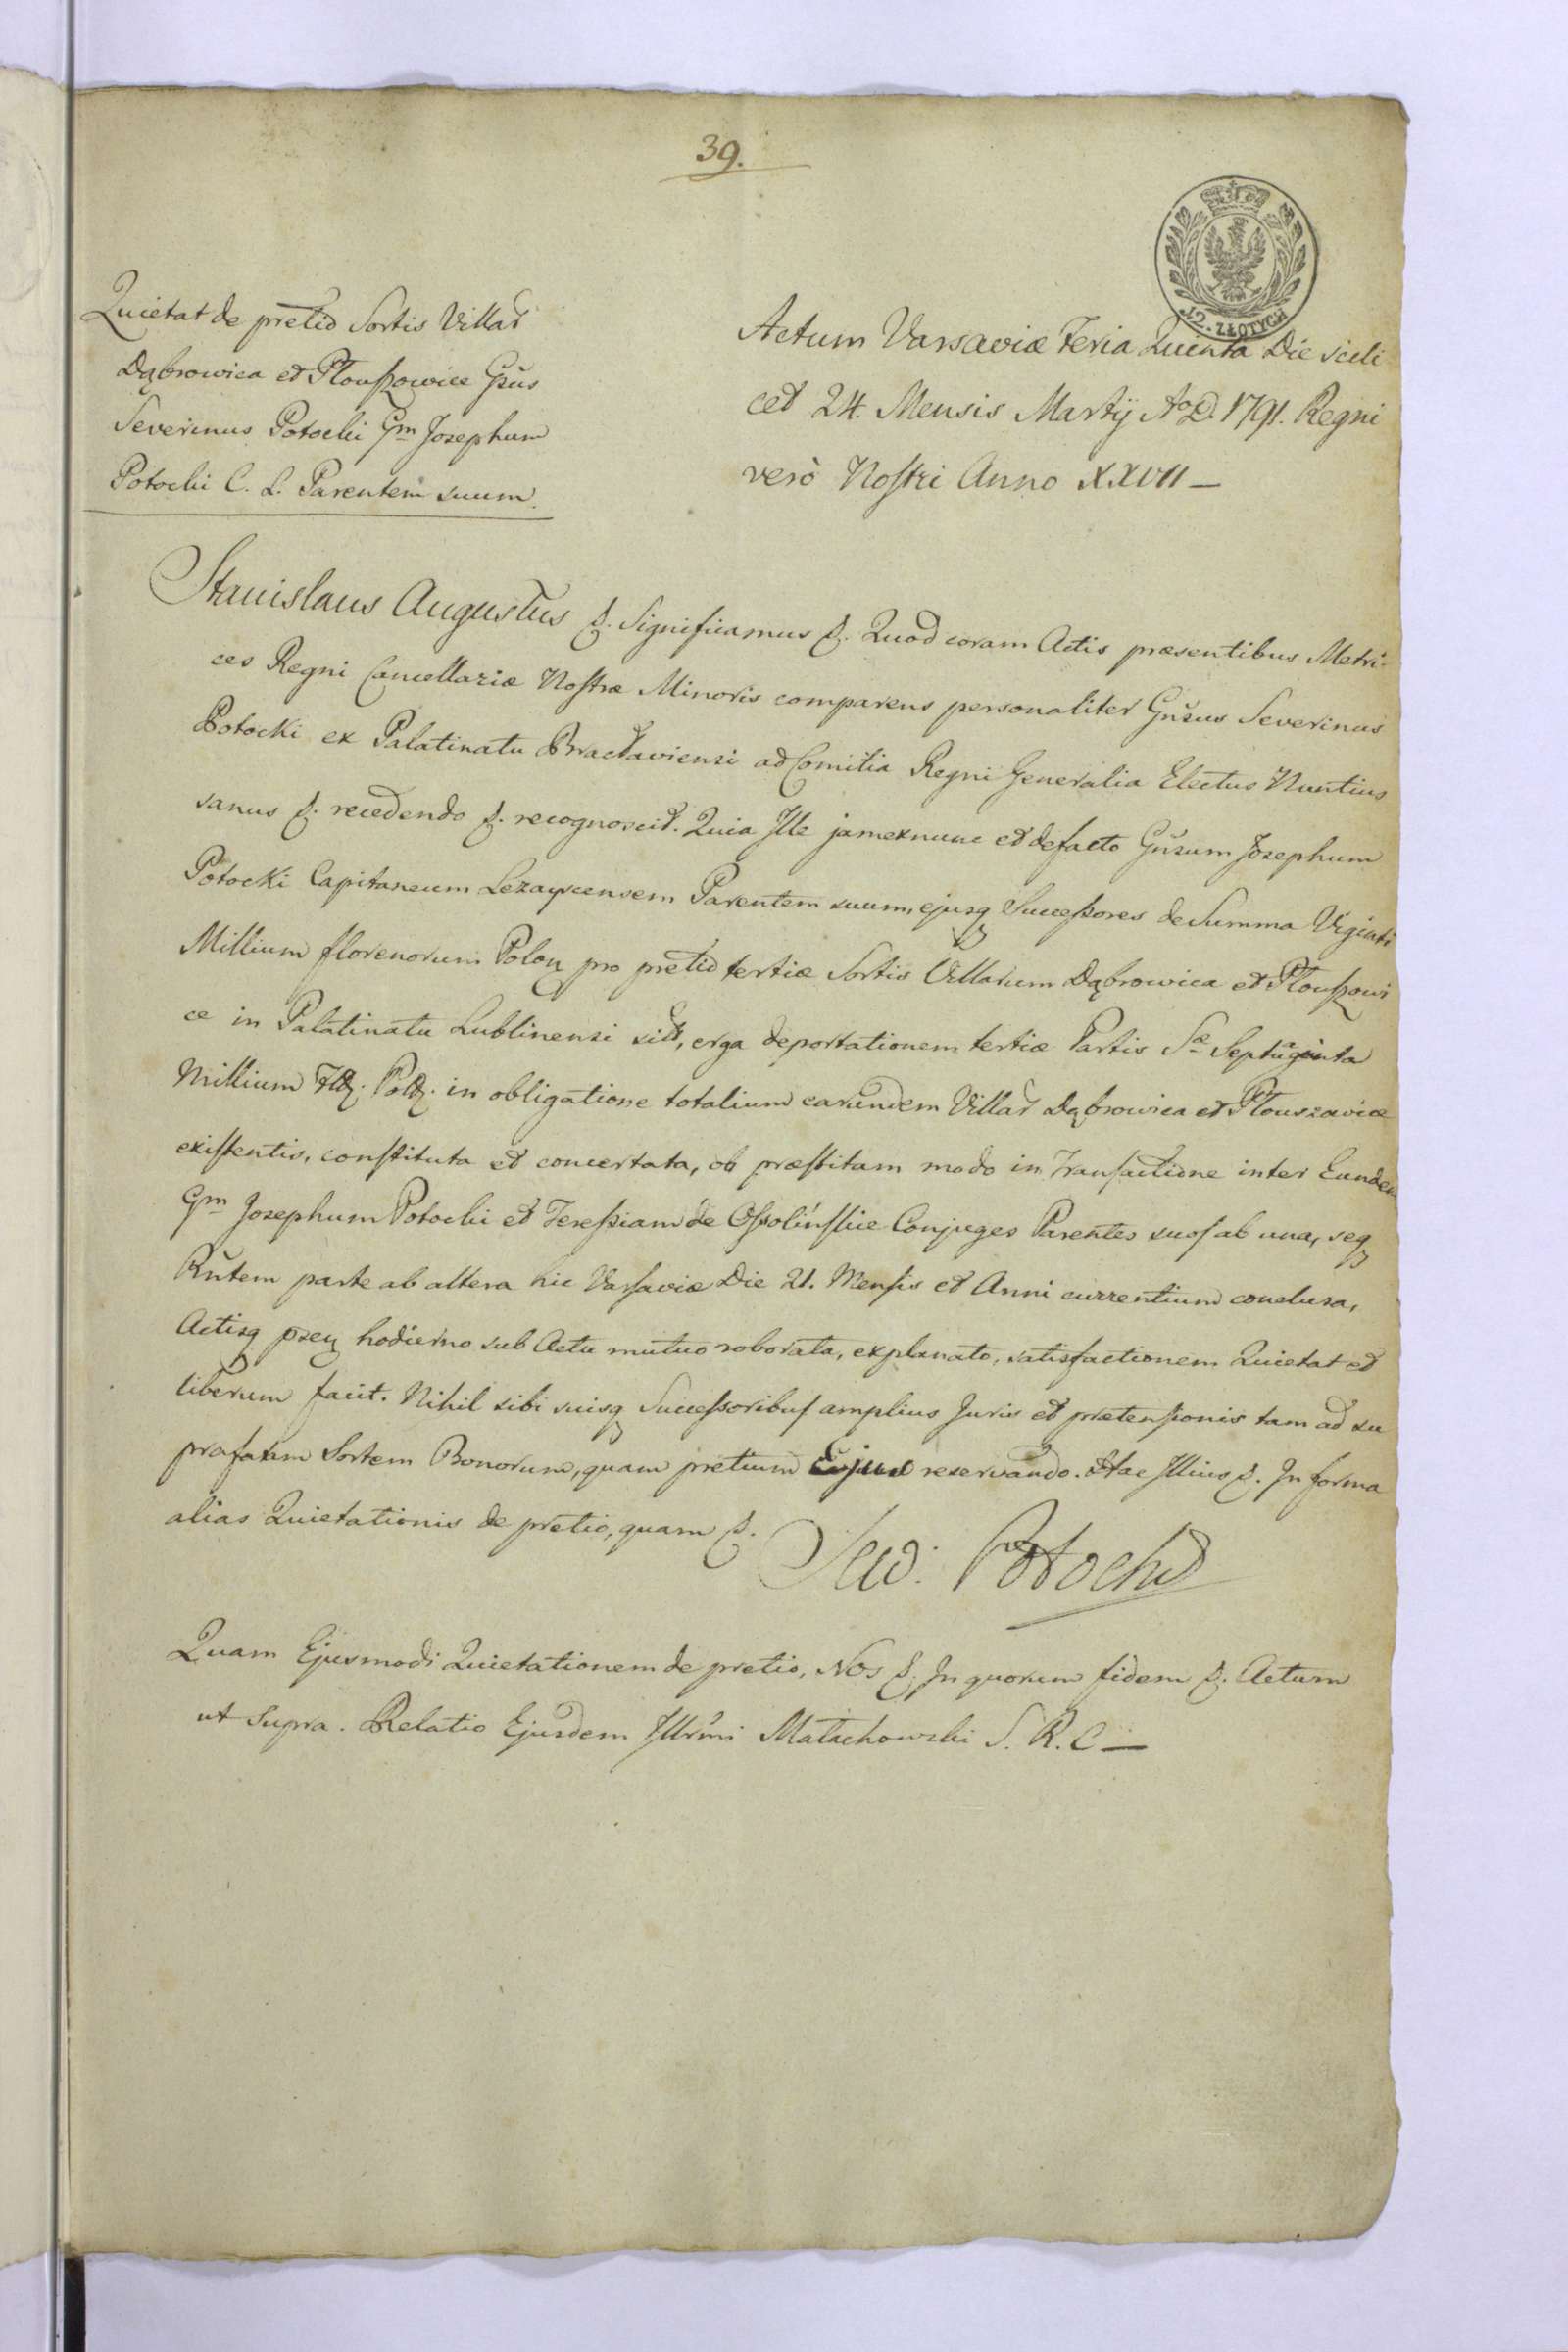 39.
12. ZŁOTYCH
Quietat de pretio Sortis Villar
Dąbrowica et Płouszowice Gsus
Severinus Potocki Gm Josephum
Potocki C. L. Parentem suum.
Actum Varsaviæ Feria Quinta Die scili
cet 24. Mensis Martÿ Ao D. 1791. Regni
verò Nostri Anno XXVII —
Stanislaus Augustus &. Significamus &. Quod coram Actis præsentibus Metri-
ces Regni Cancellariæ Nostræ Minoris comparens personaliter Gnsus Severinus
Potocki ex Palatinatu Bracłaviensi ad Comitia Regni Generalia Electus Nuntius
sanus &. recedendo &. recognoscit. Quia Ille jamexnunc et defacto Gnsum Josephum
Potocki Capitaneum Lezayscensem Parentem suum, ejusq Successores de Summa Viginti
Millium florenorum Polon pro pretio tertiæ Sortis Villarum Dąbrowica et Płouszowi
ce in Palatinatu Lublinensi sit, erga deportationem tertiæ Partis Sæ Septuaginta
Millium Fl. Pol. in obligatione totalium earundem Villar Dąbrowica et Płouszowice
existentis, constituta et concertata, ob præstitam modo in Transactione inter Eundem
Gm Josephum Potocki et Teressiam de Ossolińskie Conjuges Parentes suos ab una, seq
Rntem parte ab altera hic Varsaviæ Die 21. Mensis et Anni currentium conclusa,
Actisq psen hodierno sub Actu mutuo roborata, explanato, satisfactionem Quietat et
liberum facit. Nihil sibi suisq Successoribus amplius Juris et prætensionis tam ad su
prafatam Sortem Bonorum, quam pretium Ejus reservando. Hac Illius &. In forma
alias Quietationis de pretio, quam &.
Sew. Potocki
Quam Ejusmodi Quietationem de pretio, Nos &. In quorum fidem &. Actum
ut supra. Relatio Ejusdem Illrmi Małachowski S. R. C —